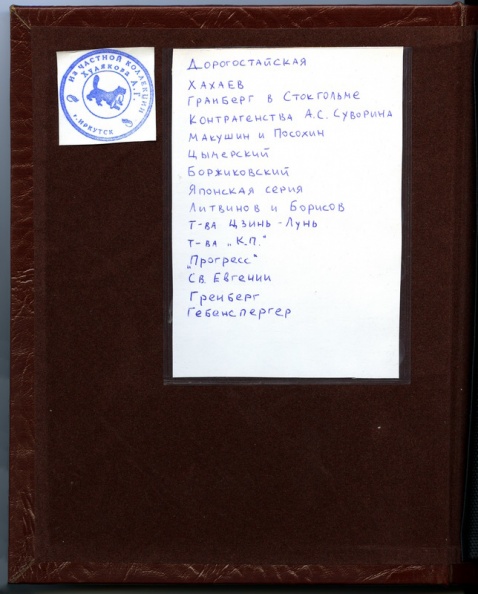 ИЗ ЧАСТНОЙ КОЛЛЕКЦИИ
ХУДЯКОВА А.Г.
Г. ИРКУТСК
Дорогостайская
Хахаев
Гранберг в Стокгольме
Контрагенства А.С. Суворина
Макушин и Посохин
Цымерский
Боржиковский
Японская серия
Литвинов и Борисов
Т-ва Цзинь-Лунь
Т-ва „К.П."
„Прогресс"
Св. Евгении
Гренберг
Гебанспергер